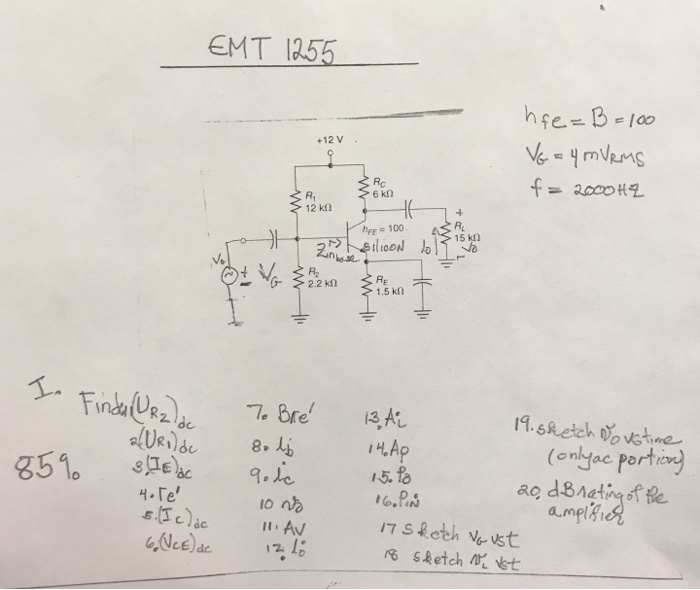 EMT 1255
hfe = B = 100
VG = 4mVRMS
f = 2000HZ
+12 V
R1
12 kΩ
RC
6 kΩ
hFE = 100
SiliCON
Zin base
RL
15 kΩ
Vo
VG
R2
2.2 kΩ
RE
1.5 kΩ
I.
85%
1. (UR2)dc
2. (UR1)dc
3. (IE)dc
4. re'
5. (Ic)dc
6. (VCE)dc
7. Bre'
8. ib
9. ic
10 vo
11. AV
12. io
13. Ai
14. Ap
15. Po
16. PiN
17 Sketch VG vst
18 sketch vst
19. sketch vo vs time
(only ac portion)
20. dB rating of the
amplifier